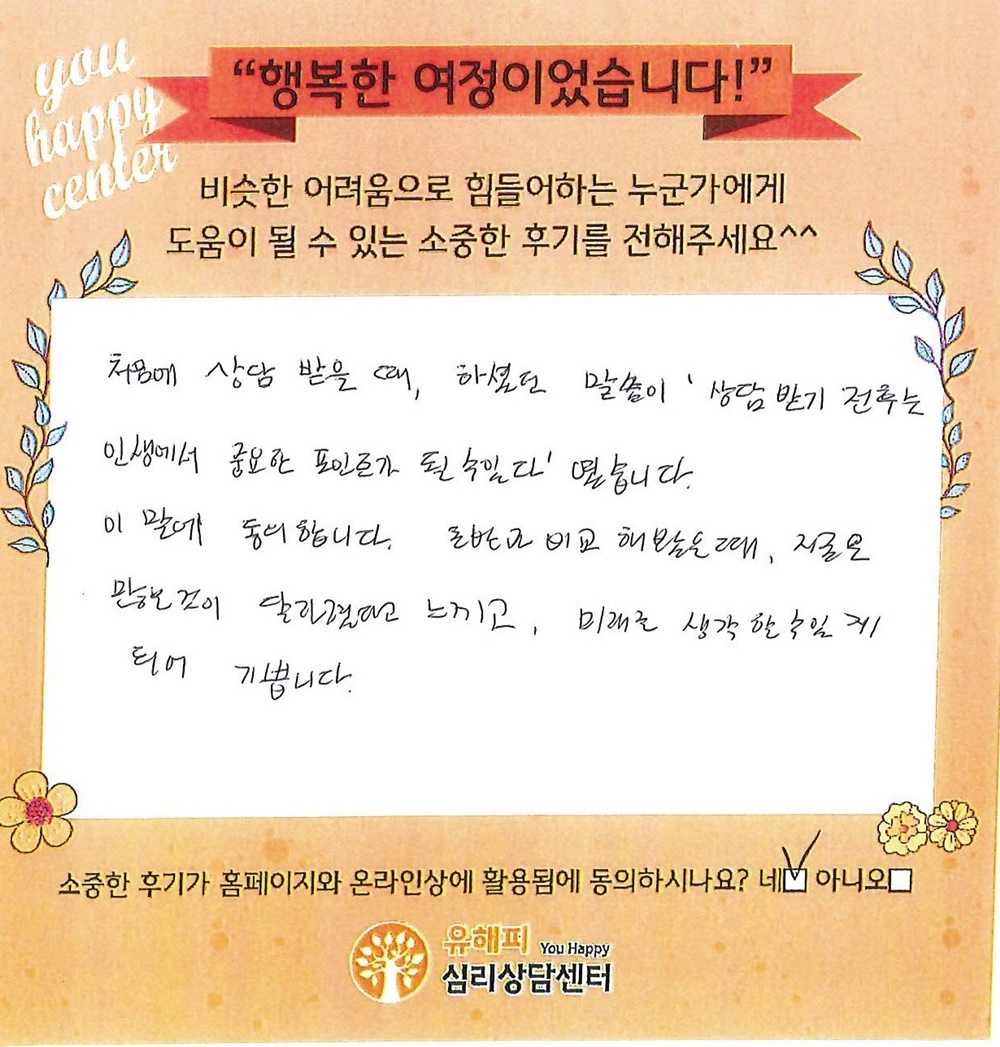 you
happy
center
“행복한 여정이었습니다!”
비슷한 어려움으로 힘들어하는 누군가에게
도움이 될 수 있는 소중한 후기를 전해주세요^^
처음에 상담 받을 때, 하셨던 말씀이 '상담받기 전후는
인생에서 중요한 포인트가 될 수있다' 였습니다.
이 말에 동의합니다. 비교 해봤을때,
많은것이 달라졌다고 느끼고, 미래를 생각 할 수있게
되어 기쁩니다.
소중한 후기가 홈페이지와 온라인상에 활용됨에 동의하시나요? 네 아니오
유해피 You Happy
심리상담센터